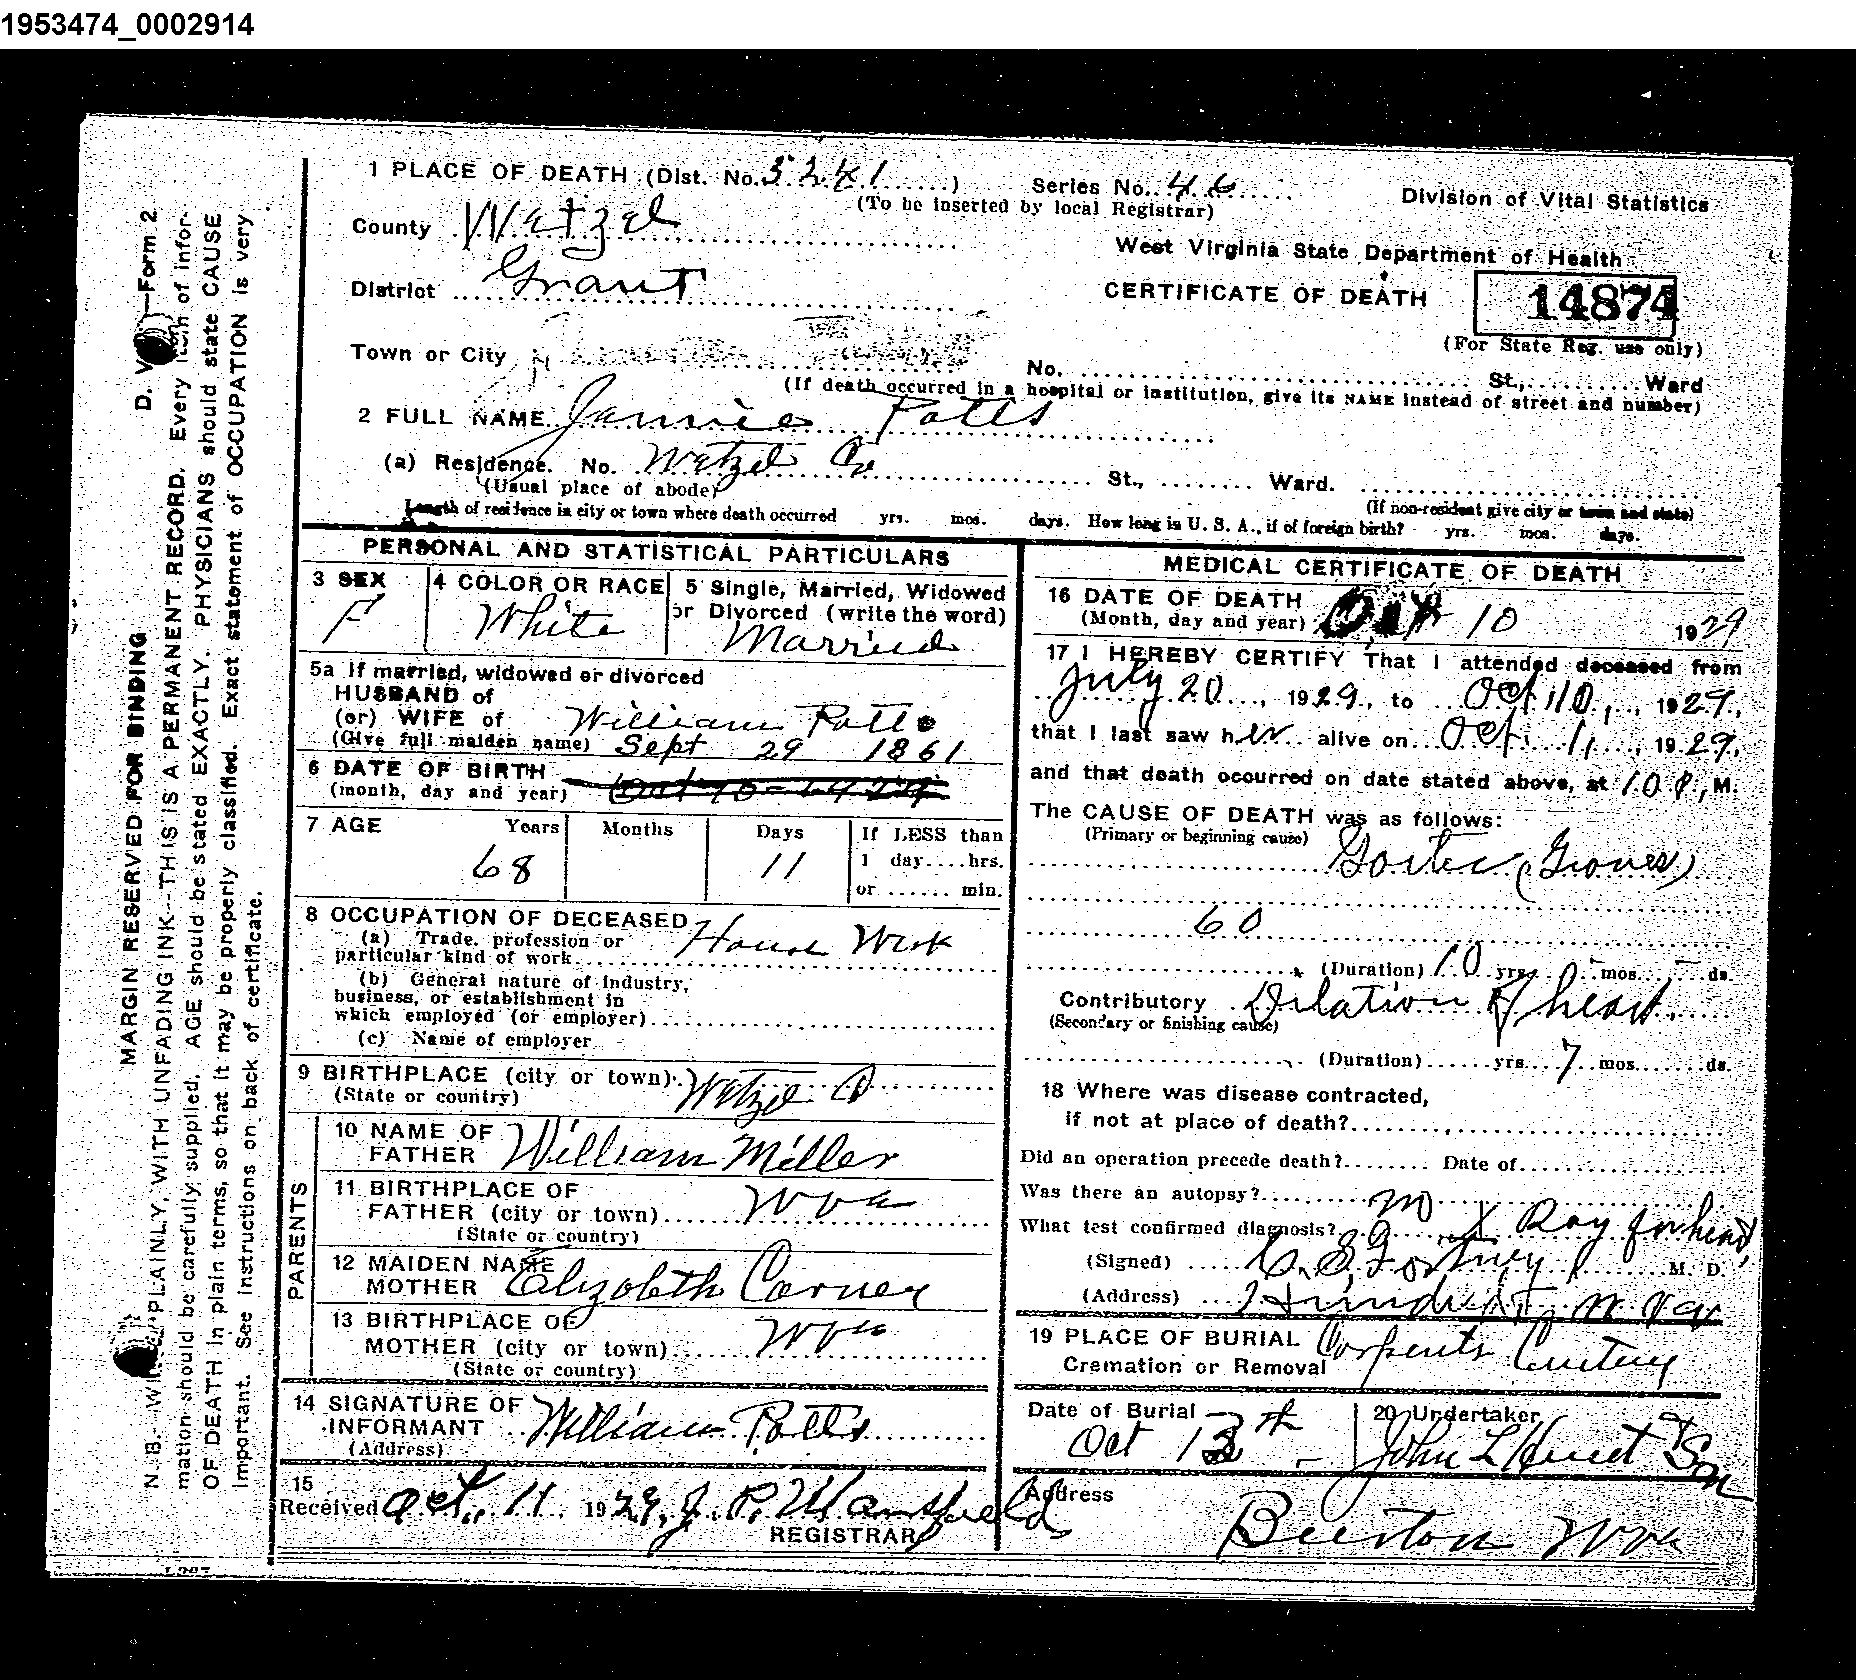 1953474_0002914
1 PLACE OF DEATH (Dist. No. 5241) Series No. 46
(To be inserted by local Registrar)
Division of Vital Statistics
County Wetzel
West Virginia State Department of Health
District Grant
CERTIFICATE OF DEATH 14874
(For State Reg. use only)
Town or City
No. St., Ward
(If death occurred in a hospital or institution, give its NAME instead of street and number)
2 FULL NAME Jannie Potts
(a) Residence. No. Wetzel Co St., Ward.
(Usual place of abode) (If non-resident give city or town and state)
Length of residence in city or town where death occurred yrs. mos. days. How long in U. S. A., if of foreign birth? yrs. mos. days.
PERSONAL AND STATISTICAL PARTICULARS
3 SEX
F
4 COLOR OR RACE
White
5 Single, Married, Widowed
or Divorced (write the word)
Married
5a If married, widowed or divorced
HUSBAND of
(or) WIFE of William Potts
(Give full maiden name) Sept 29 1861
6 DATE OF BIRTH
(month, day and year) Oct 10 - 1929
7 AGE Years Months Days If LESS than
68 11 1 day....hrs.
or ...... min.
8 OCCUPATION OF DECEASED
(a) Trade, profession or
particular kind of work House Work
(b) General nature of industry,
business, or establishment in
which employed (or employer)
(c) Name of employer
9 BIRTHPLACE (city or town) Wetzel Co
(State or country)
PARENTS
10 NAME OF
FATHER William Miller
11 BIRTHPLACE OF
FATHER (city or town) W va
(State or country)
12 MAIDEN NAME
MOTHER Elizabeth Carney
13 BIRTHPLACE OF
MOTHER (city or town) W va
(State or country)
14 SIGNATURE OF
INFORMANT William Potts
(Address)
15
Received Oct. 11 1929, J. P. Mansfield
REGISTRAR
MEDICAL CERTIFICATE OF DEATH
16 DATE OF DEATH
(Month, day and year) Oct 10 1929
17 I HEREBY CERTIFY That I attended deceased from
July 20, 1929, to Oct 10, 1929,
that I last saw her alive on Oct. 1, 1929,
and that death occurred on date stated above, at 10 P. M.
The CAUSE OF DEATH was as follows:
(Primary or beginning cause)
Goiter (Graves)
60
(Duration) 10 yrs. 0 mos. - ds.
Contributory Dilation of heart.
(Secondary or finishing cause)
(Duration) yrs. 7 mos. ds.
18 Where was disease contracted,
if not at place of death?
Did an operation precede death? Date of
Was there an autopsy? no
What test confirmed diagnosis? X Ray for heart,
(Signed) C. S. Fortney M. D.
(Address) Hundred, W Va
19 PLACE OF BURIAL
Cremation or Removal Carpenter Cemetery
Date of Burial
Oct 13th
20 Undertaker
John L Hunt & Son
Address
Burton W va
MARGIN RESERVED FOR BINDING
D. V. Form 2
N. B.—WRITE PLAINLY, WITH UNFADING INK—THIS IS A PERMANENT RECORD. Every item of infor-
mation should be carefully supplied. AGE should be stated EXACTLY. PHYSICIANS should state CAUSE
OF DEATH in plain terms, so that it may be properly classified. Exact statement of OCCUPATION is very
important. See instructions on back of certificate.